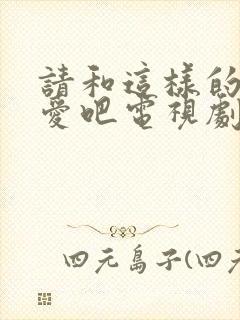 請和這樣的
愛吧電視劇
四元島子(四元